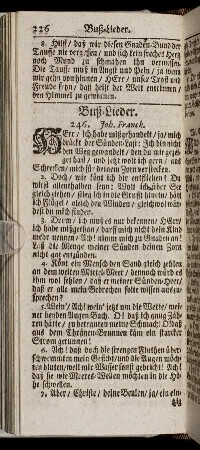 226 Buß-Lieder.
8. Hilff/ daß wir diesen Gnaden-Bund der
Tauffe nie vergessen/ und sich kein frecher Hertz
noch Mund zu schmähen ihn vermessen/
Die Tauff muß in Angst und Pein/ ja wenn
wir gehn von hinnen/ HErr/ unser Trost und
Freude seyn/ daß heist der Welt entrinnen/
den Himmel zu gewinnen.
Buß-Lieder.
246. Joh. Franck.
HErr/ ich habe mißgehandelt/ ja/ mich
drückt der Sünden-Last: Ich bin nicht
den Weg gewandelt/ den du mir gezei-
get hast/ und jetzt wolt ich gern/ aus
Schrecken/ mich für deinem Zorn verstecken.
2. Doch/ wie könt ich dir entfliehen? Du
wirst allenthalben seyn: Wolt ich über See
gleich ziehen/ stieg ich in die Grufft hinein/ hätt
ich Flügel/ gleich den Winden/ dennoch würdest
du mich finden.
3. Drum/ ich muß es nur bekennen/ HErr/
ich habe mißgethan/ darff mich nicht dein Kind
mehr nennen/ Ach! nimm mich zu Gnaden an/
Laß die Menge meiner Sünden deinen Zorn
nicht gar entzünden.
4. Könt ein Mensch den Sand gleich zehlen
an dem weiten Mittel-Meer/ dennoch würd es
ihm wol fehlen/ daß er meiner Sünden-Heer/
daß er alle mein Gebrechen solte wissen auszu-
sprechen?
5. Wein/ Ach! wein' jetzt um die Wette/ mei-
ner beyden Augen-Bach. O! daß ich gnug Zäh-
ren hätte/ zu betrauren meine Schmach! O! daß
aus dem Thränen-Brunnen käm ein starcker
Strom gerunnen!
6. Ach! daß doch die strengen Fluthen über-
schwemmten mein Gesicht/ und die Augen möch-
ten bluten/ weil mir Wasser sonst gebricht! Ach!
daß sie wie Meeres-Wellen möchten in die Hö-
he schwellen.
7. Aber/ Christe/ deine Beulen/ ja/ ein ein-